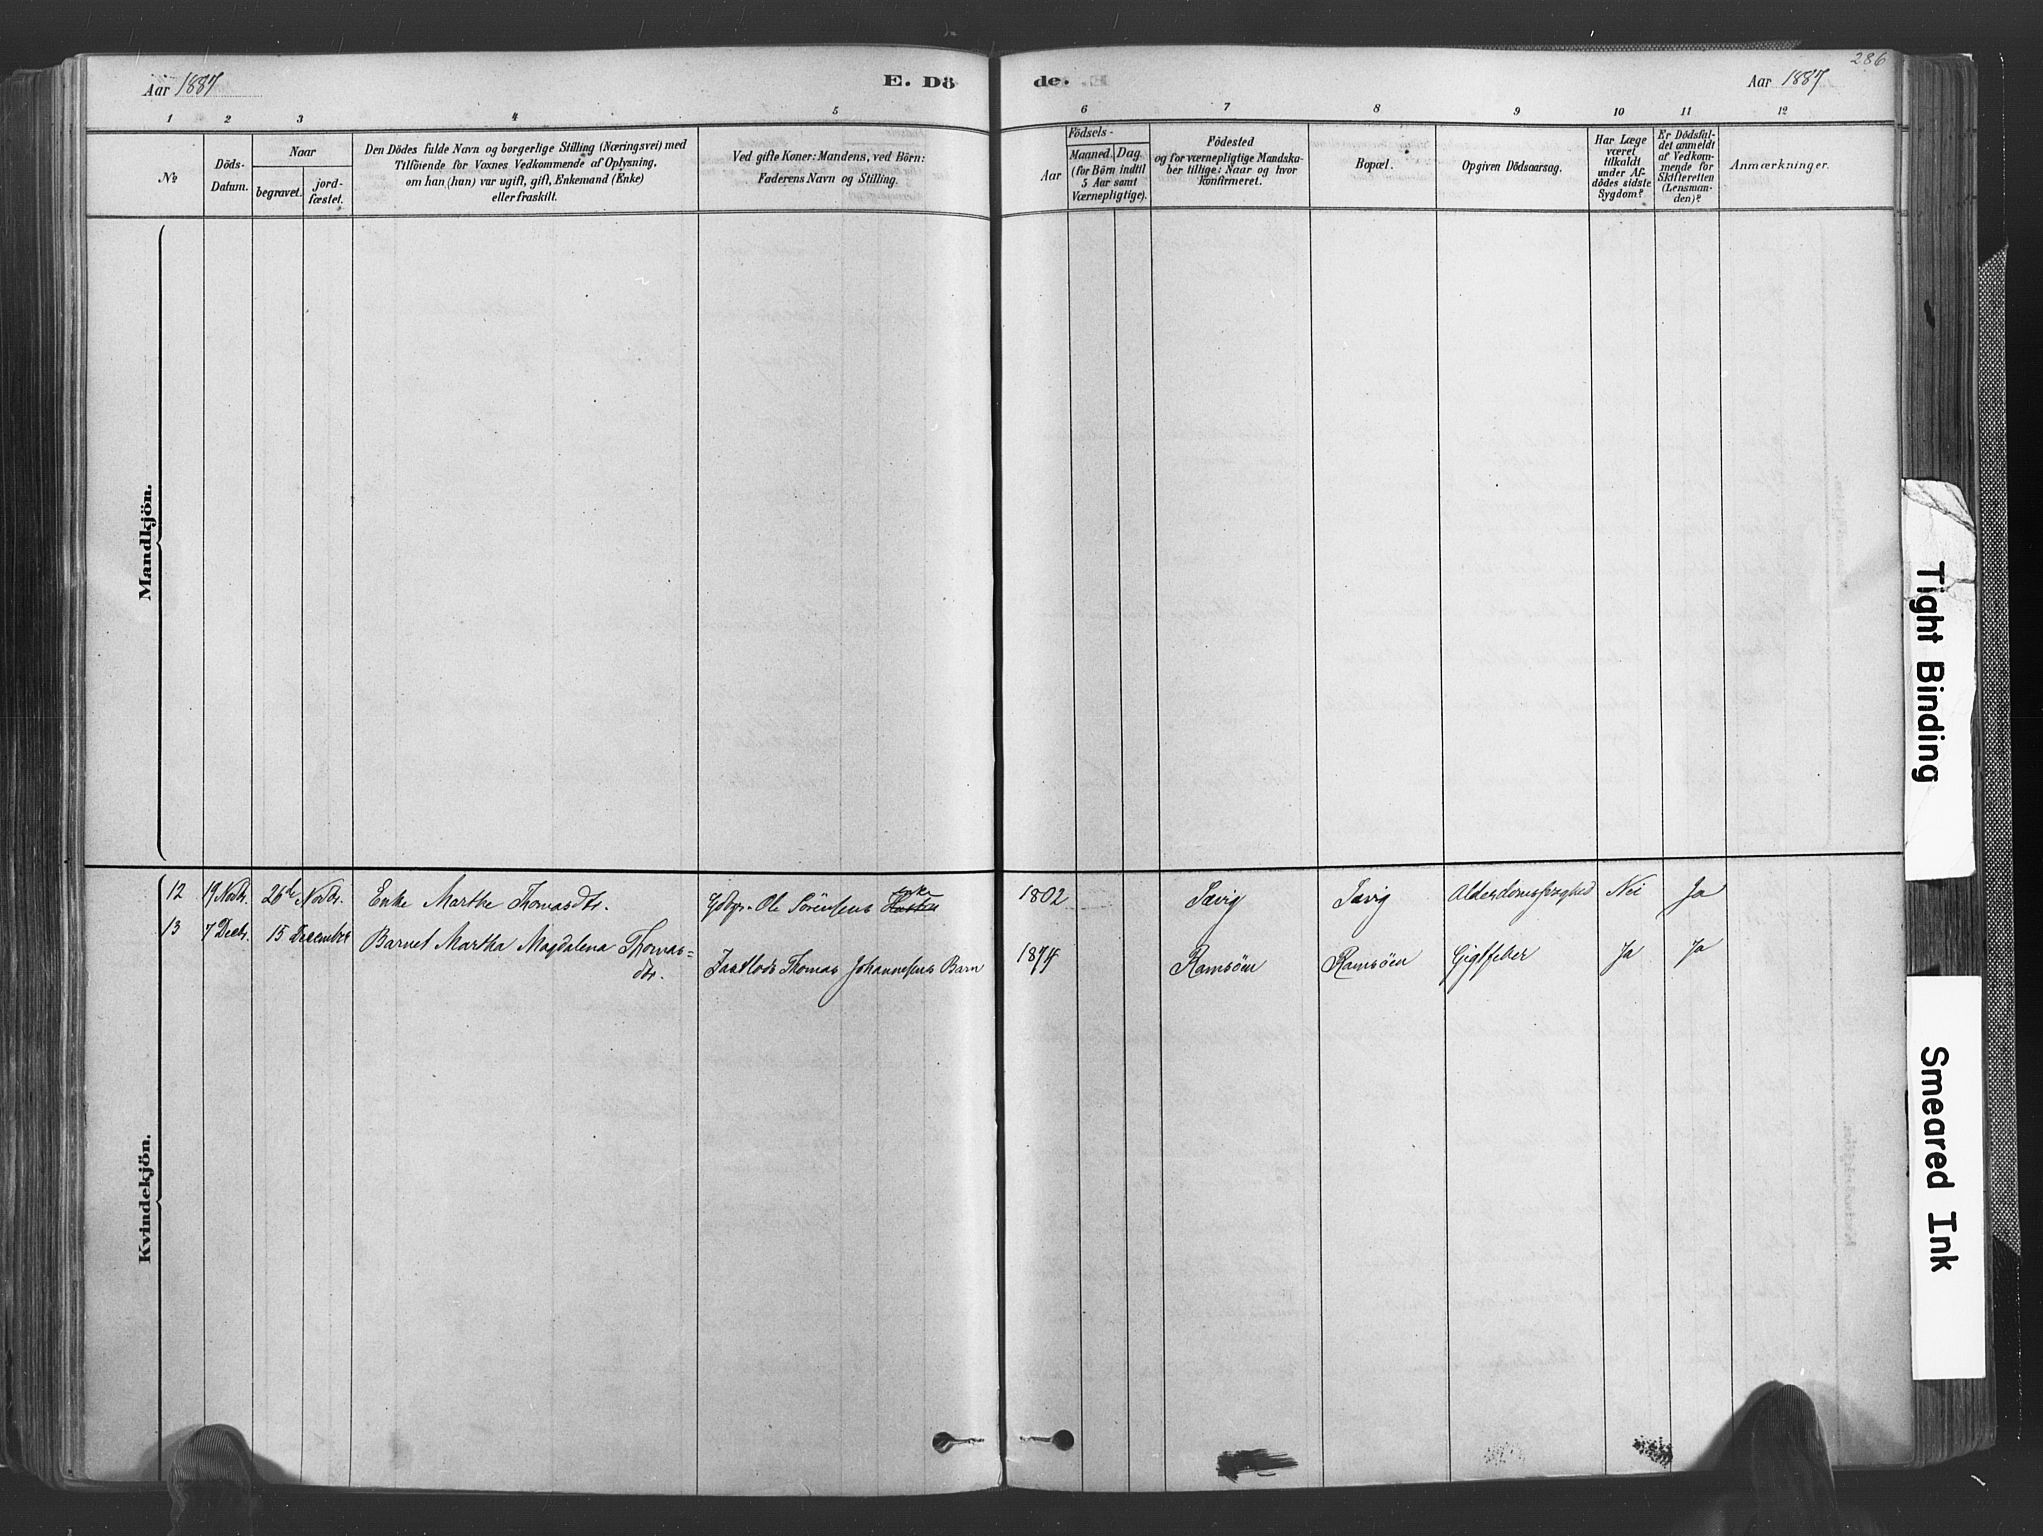 286
Aar 1887
E. Dö
de.
Aar 1887
1 2 3 4 5 6 7 8 9 10 11 12
No
Döds-
Datum.
Naar
begravet.
jord-
fæstet.
Den Dödes fulde Navn og borgerlige Stilling (Næringsvei) med
Tilföiende for Voxnes Vedkommende af Oplysning,
om han (hun) var ugift, gift, Enkemand (Enke)
eller fraskilt.
Ved gifte Koner: Mandens, ved Börn:
Faderens Navn og Stilling.
Födsels-
Aar
Maaned. Dag.
(for Börn indtil
5 Aar samt
Værnepligtige).
Födested
og for værnepligtige Mandska-
ber tillige: Naar og hvor
Konfirmeret.
Bopæl.
Opgiven Dödsaarsag.
Har Læge
været
tilkaldt
under Af-
dödes sidste
Sygdom?
Er Dödsfal-
det anmeldt
af Vedkom-
mende for
Skifteretten
(Lensman-
den)?
Anmærkninger.
Mandkjön.
Kvindekjön.
12 19 Novbr. 26de Novbr. Enke Marthe Thomasdtr. Ole Sörensens Enke 1802 Sævig Sævig Alderdomssvaghed Nei Ja
13 7 Decbr. 15 December Barnet Martha Magdalena Thomas=
dtr. Thomas Johannesens Barn 1874 Ramsöen Ramsöen Gigtfeber Ja Ja
Tight Binding
Smeared Ink